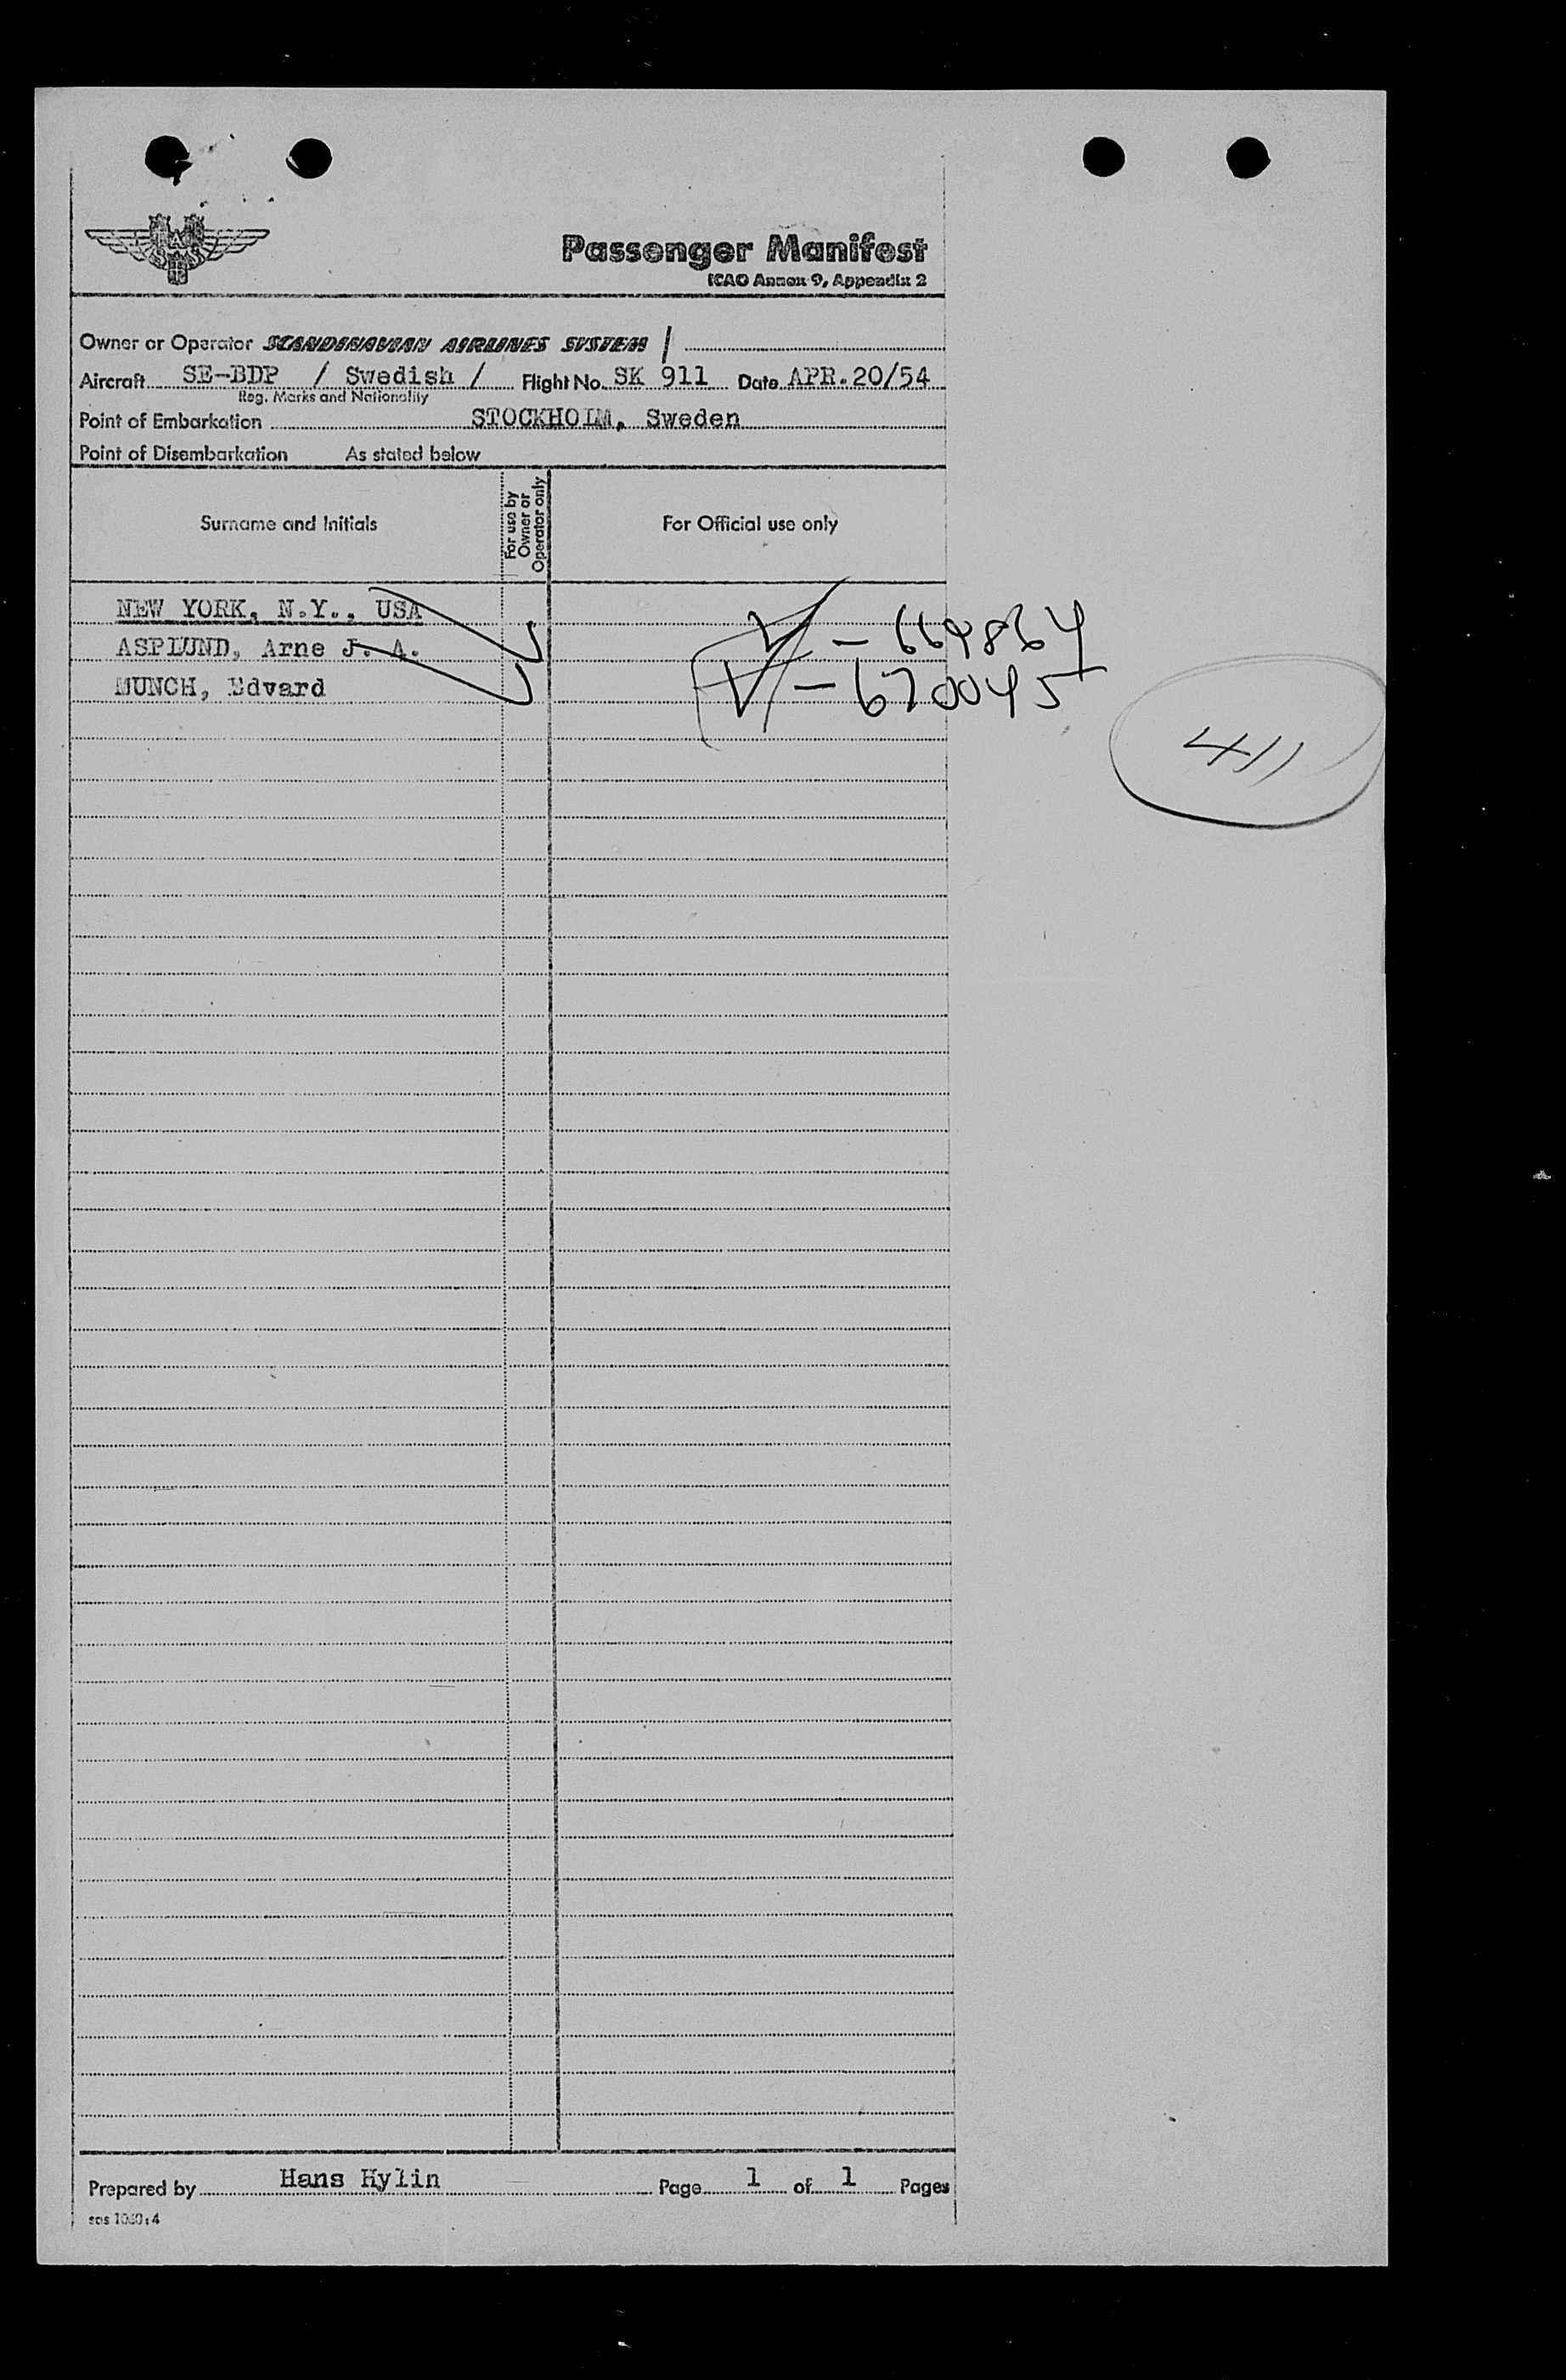 SAS
Passenger Manifest
ICAO Annex 9, Appendix 2
Owner or Operator SCANDINAVIAN AIRLINES SYSTEM /
Aircraft SE-BDP / Swedish / Flight No. SK 911 Date APR. 20/54
Reg. Marks and Nationality
Point of Embarkation STOCKHOLM, Sweden
Point of Disembarkation As stated below
Surname and Initials
For use by
Owner or
Operator only
For Official use only
NEW YORK, N.Y., USA
ASPLUND, Arne J. A. - 669864
MUNCH, Edvard - 670045
411
Prepared by Hans Hylin Page 1 of 1 Pages
sas 1030:4